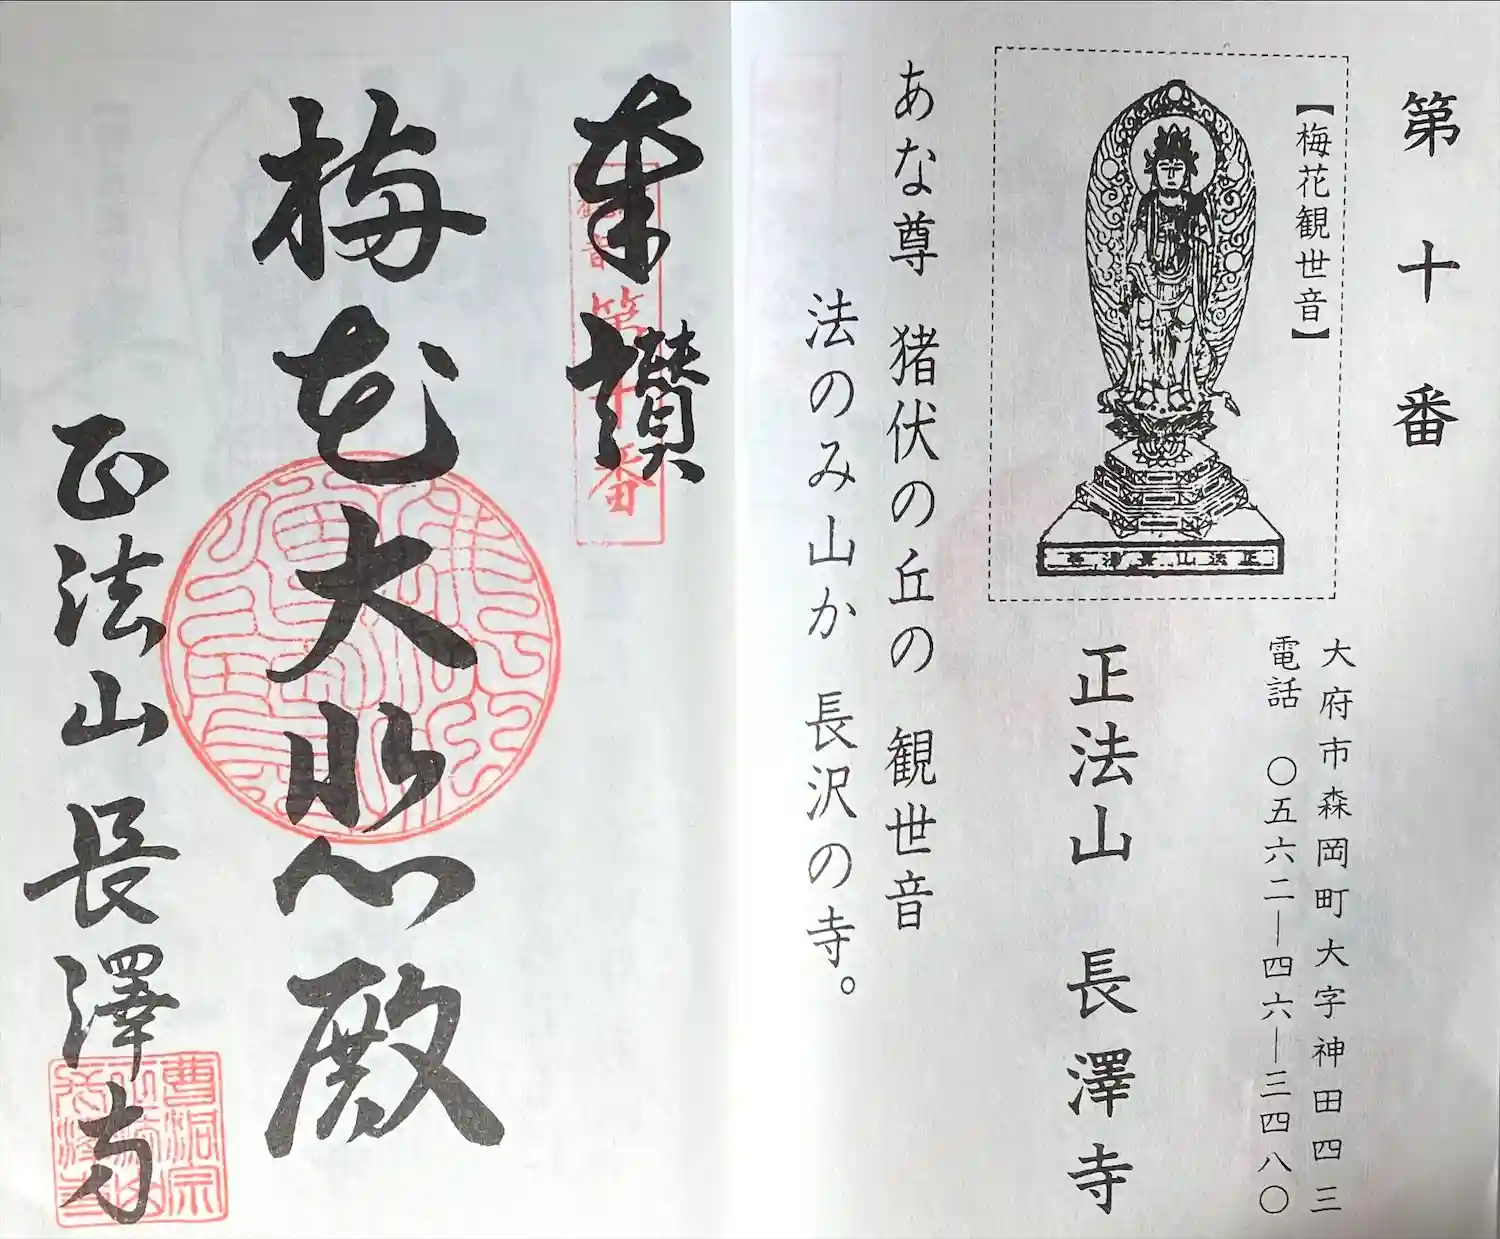 第十番
【梅花観世音】
正法山長澤寺
大府市森岡町大字神田四三
電話 〇五六二―四六―三四八〇
正法山 長澤寺
あな尊 猪伏の丘の 観世音
法のみ山か 長沢の寺。
奉讃
第十番
梅花大悲殿
正法山長澤寺
曹洞宗